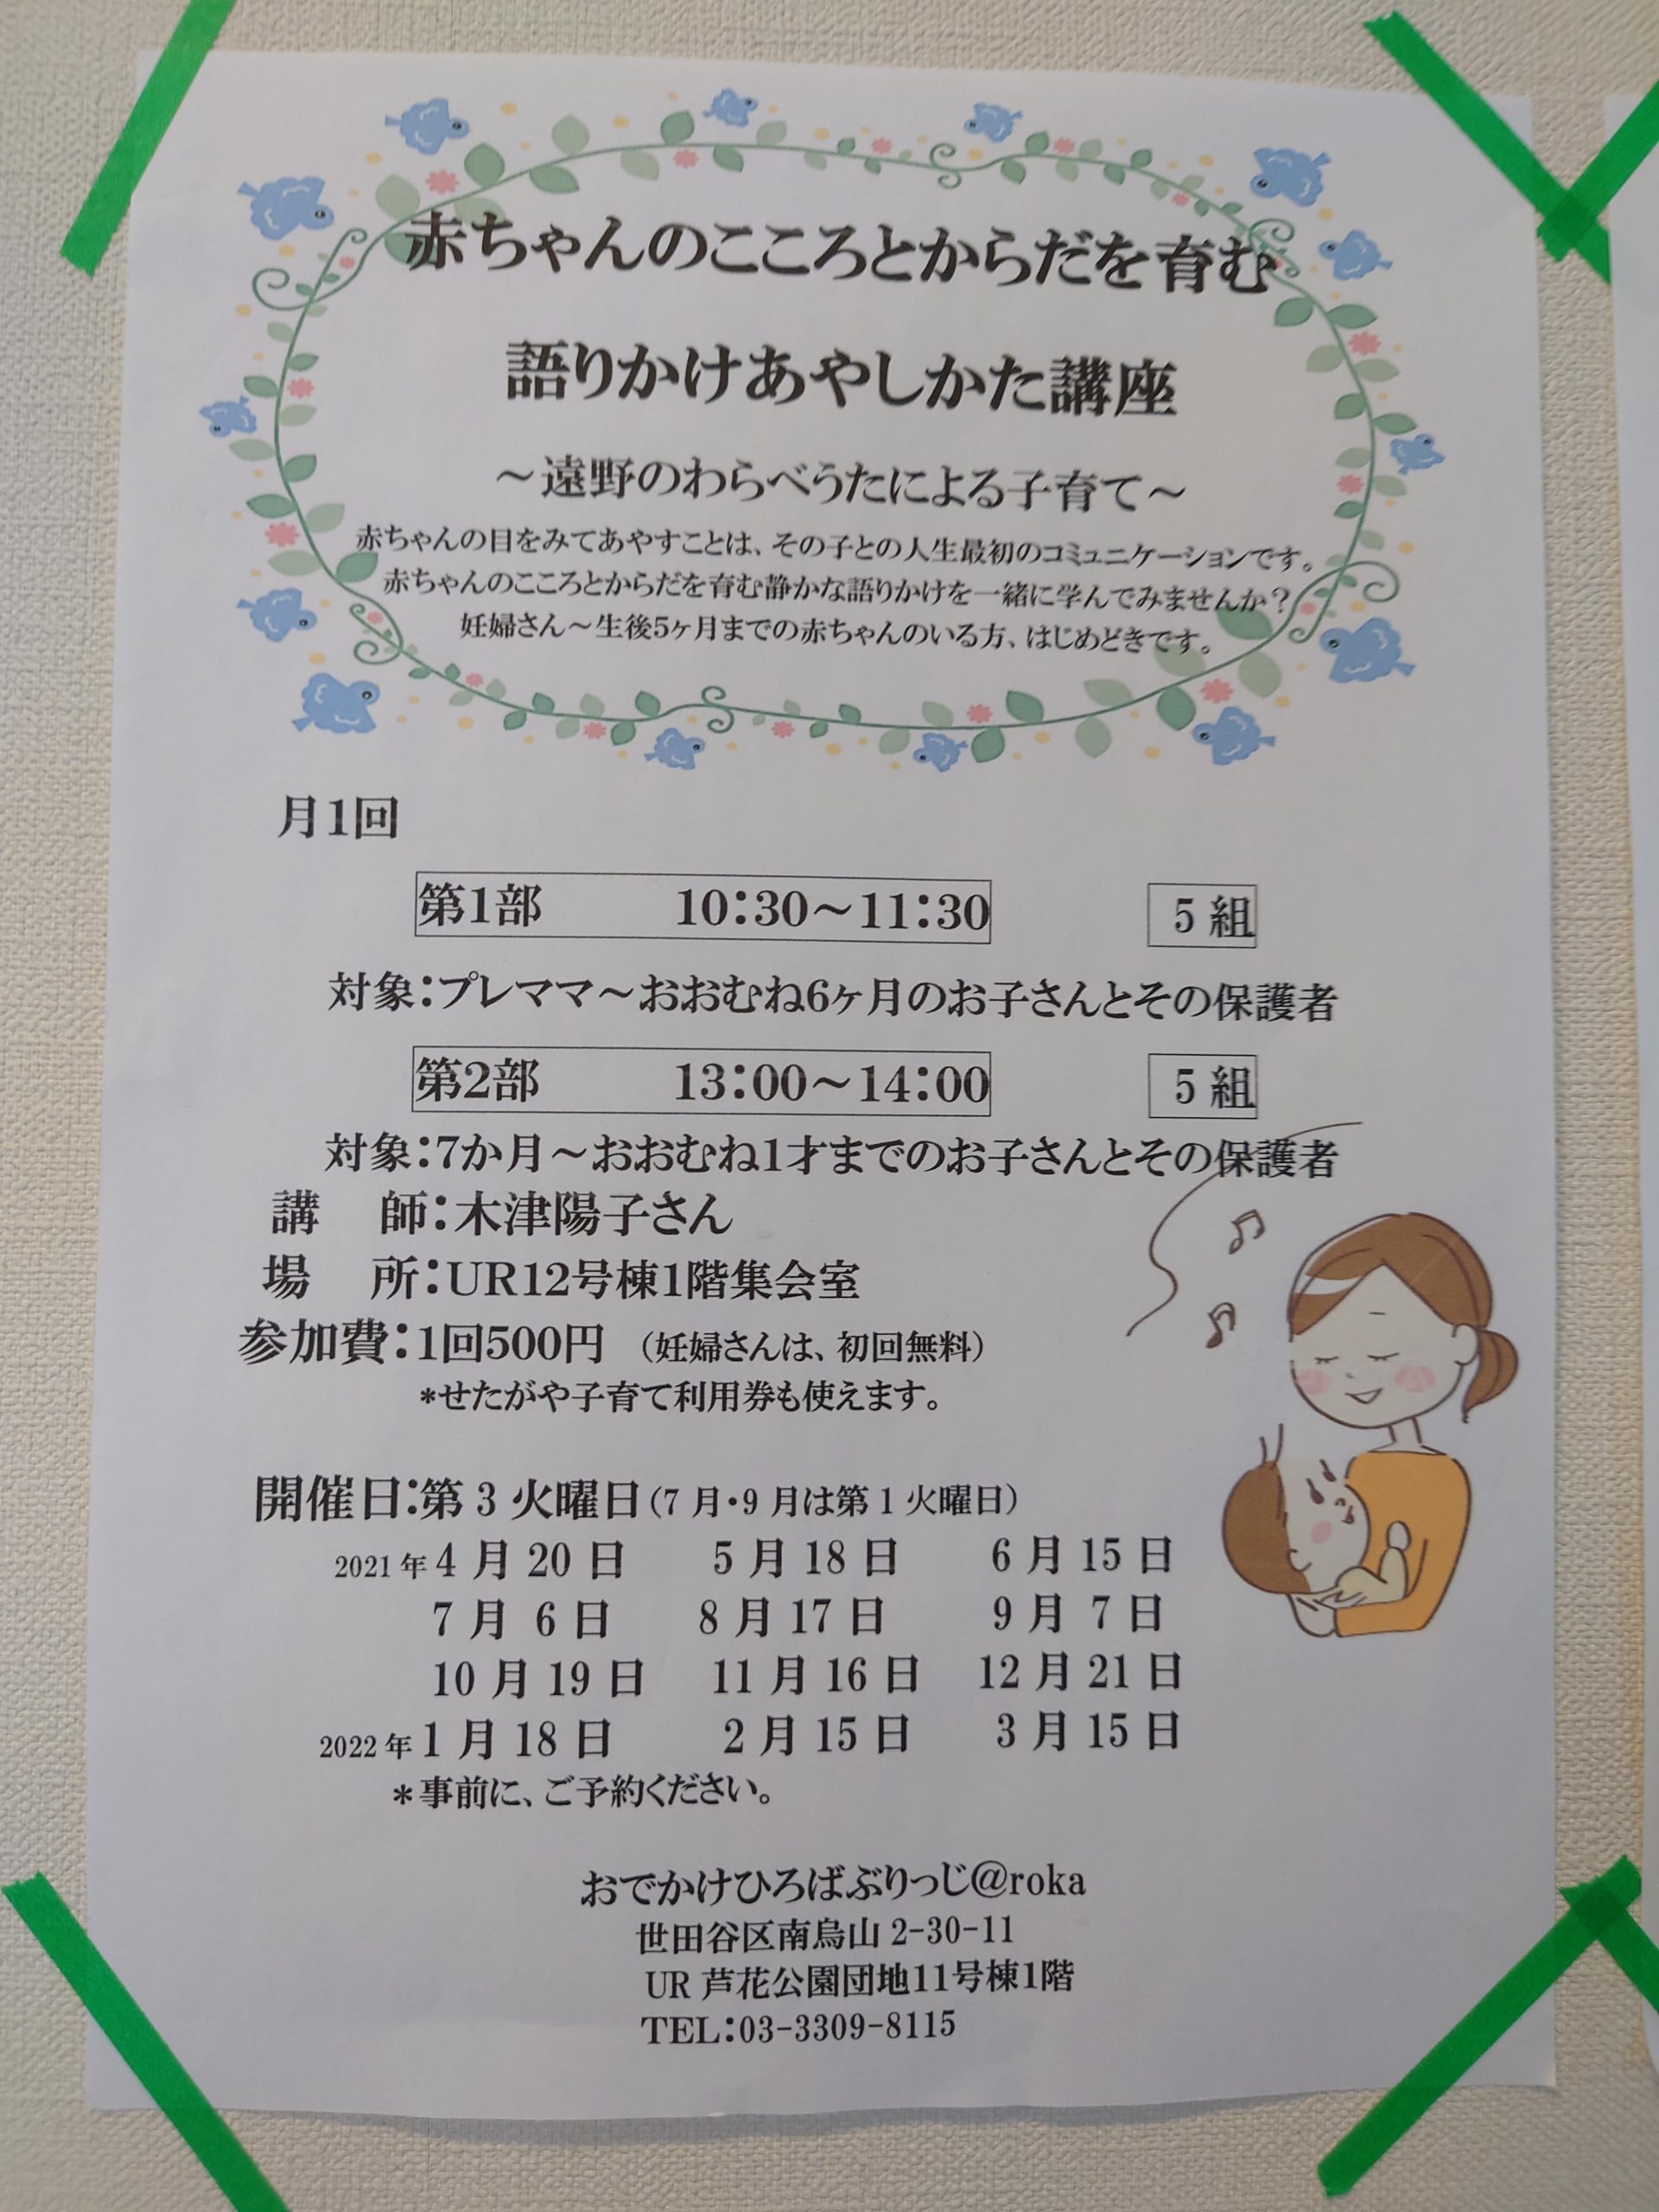 赤ちゃんのこころとからだを育む
語りかけあやしかた講座
～遠野のわらべうたによる子育て～
赤ちゃんの目をみてあやすことは、その子との人生最初のコミュニケーションです。
赤ちゃんのこころとからだを育む静かな語りかけを一緒に学んでみませんか?
妊婦さん～生後5ヶ月までの赤ちゃんのいる方、はじめどきです。
月1回
第1部 10:30～11:30 5組
対象:プレママ～おおむね6ヶ月のお子さんとその保護者
第2部 13:00～14:00 5組
対象:7か月～おおむね1才までのお子さんとその保護者
講 師:木津陽子さん
場 所:UR12号棟1階集会室
参加費:1回500円 (妊婦さんは、初回無料)
*せたがや子育て利用券も使えます。
開催日:第3火曜日(7月・9月は第1火曜日)
2021年4月20日 5月18日 6月15日
7月 6日 8月17日 9月 7日
10月19日 11月16日 12月21日
2022年1月18日 2月15日 3月15日
*事前に、ご予約ください。
おでかけひろばぶりっじ@roka
世田谷区南烏山2-30-11
UR芦花公園団地11号棟1階
TEL:03-3309-8115